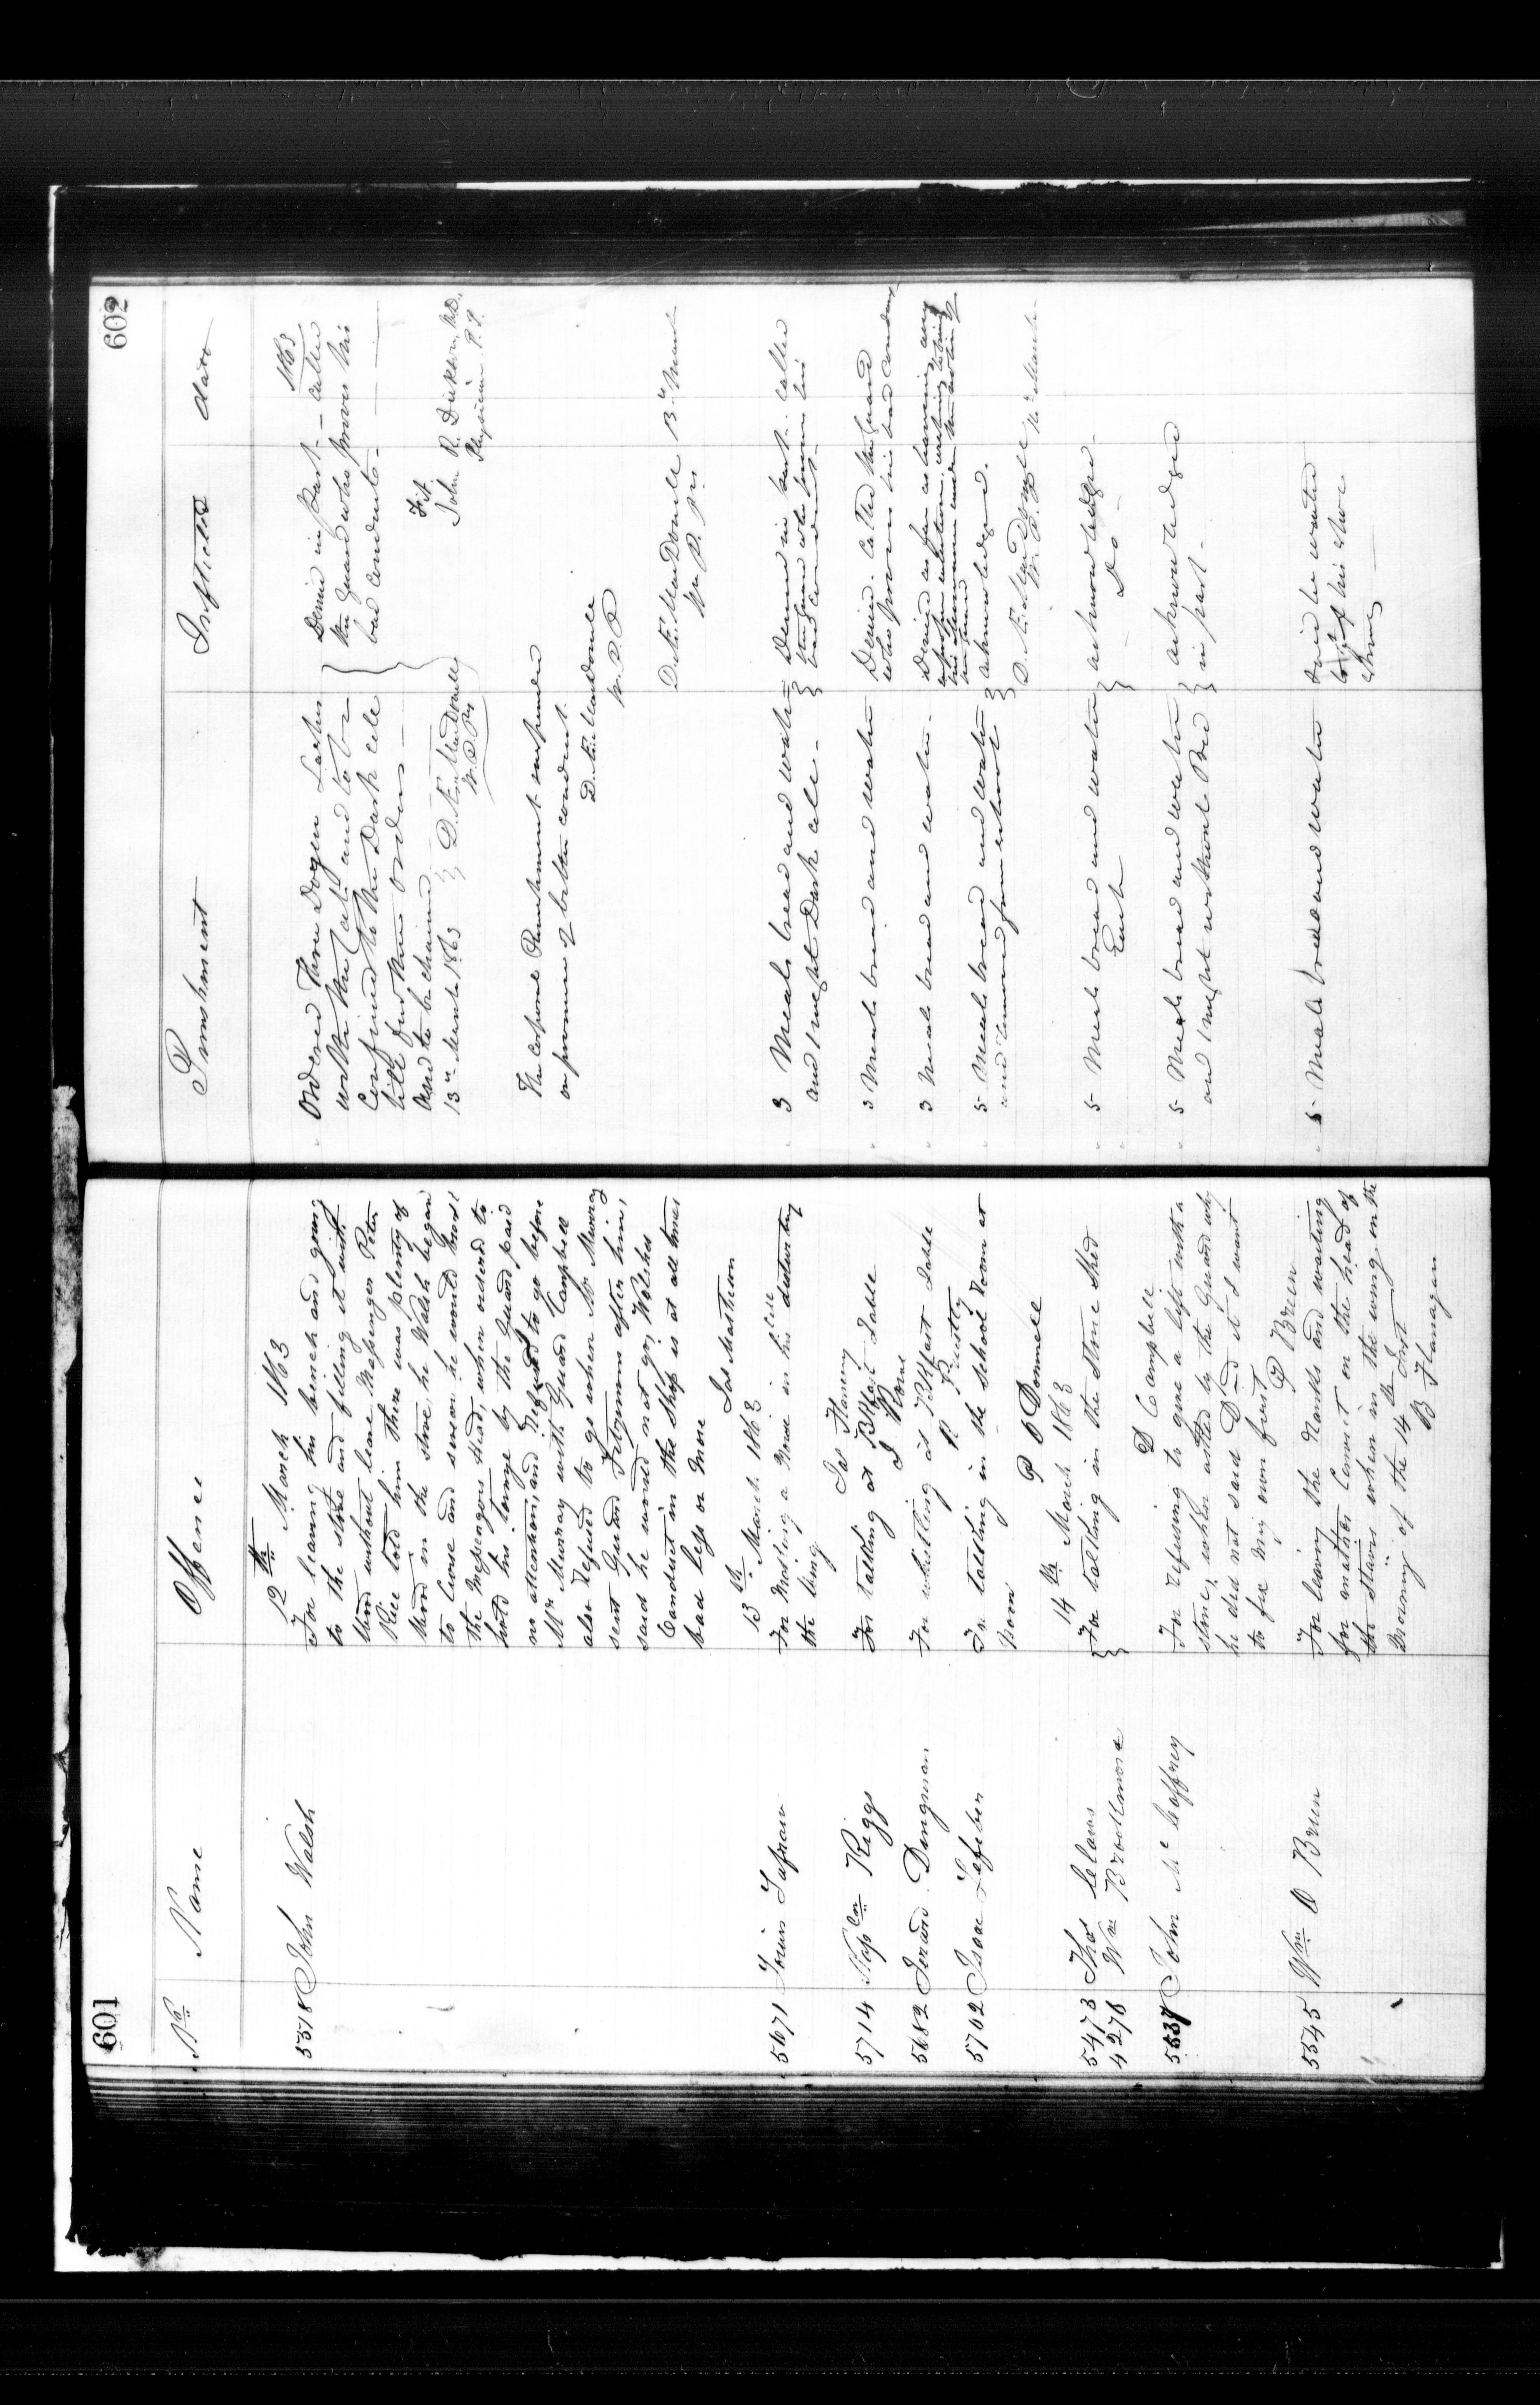 601
No. Name Offence
12th March 1863
5518 John Walsh For leaving his bench and going
to the stove and filling it with
Wood without leave Messenger Peter
Rice told him there was plenty of
Wood in the stove, he Walsh began
to Curse and swear he would
the Messengers Head, when ordered to
hold his tounge by the Guard paid
no attention, and refused to go before
Mr Murray with Guard Campbell
also Refused to go when Mr Murray
sent Guard after him,
said he would not go, Walshes
Conduct in the Shop is at all times
bad less or more
Jas Matheson
13th March 1863
5671 For Making a Noise in his Cell disturbing
the wing
Jas Flanery
5714 Riggs For talking at Bkfast table
5682 Dingman For whistling at Bkfast table
5702 Isaac Lefeber For talking in the school room at
Noon
P O Donnell
14th March 1863
5473 Thos
4276 Wm Brookmore
For talking in the Stone Shed
D Campbell
5537 John McCaffrey For refusing to give a lift with a
stone, when asked by the Guard why
he did not said D--d it I want
to fix my own first
P Breen
5545 Wm O Brien For leaving the Ranks and waiting
for another Convict on the head of
the stairs when in the wing on the
Morning of the 14th Inst
B Flanagan
602
Punishment Inflicted date
1863
Ordered Three Dozen Lashes
with the Cats and to be
Confined to the Dark cell
till further orders
And to be chained
13th March 1863 D. Æ. MacDonell
W. P. P.
Denied in part - called
the Guard who proves his
bad conduct -
Fit
John R. Dickson, M.D.
Physician P.P.
The Corporal Punishment suspended
on promise of better conduct.
D. Æ. Macdonell
W. P. P.
D. Æ. MacDonell 13th March
W. P. P.
3 Meals bread and water
and 1 night Dark cell -
Denied in part - called
the Guard who proves his
bad conduct -
3 Meals bread and water
Denied. Called the Guard
who proves his bad conduct
3 Meals bread and water -
5 Meals bread and water
and removed from school
acknowledged.
D. Æ. MacDonell
5 Meals bread and water
Each
acknowledged -
Do -
5 Meals bread and water
and 1 night without Bed
acknowledged
in part -
5 Meals bread and water
Said he waited
to get his shoe